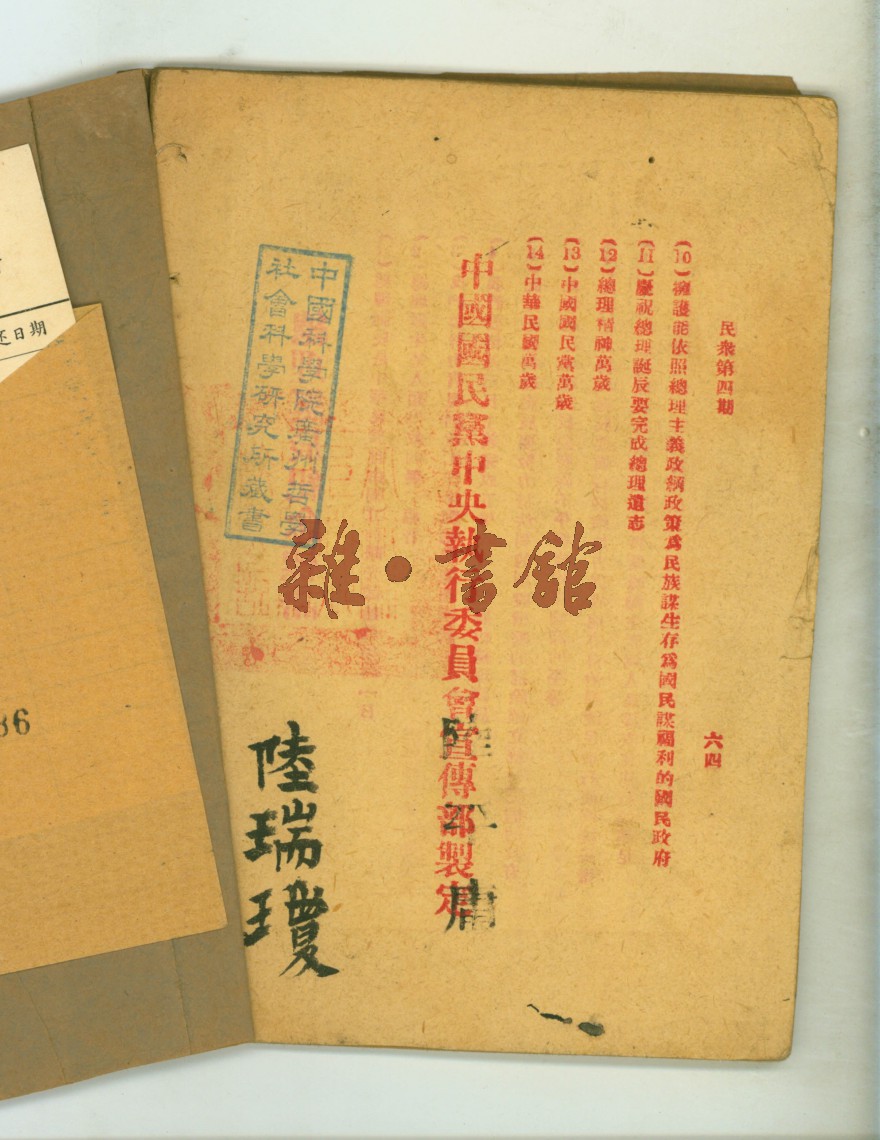 民衆第四期
六四
(10)擁護能依照總理主義政綱政策爲民族謀生存爲國民謀福利的國民政府
(11)慶祝總理誕辰要完成總理遺志
(12)總理精神萬歲
(13)中國國民黨萬歲
(14)中華民國萬歲
中國國民黨中央執行委員會宣傳部製定
中國科學院廣州哲學
社會科學研究所藏書
陸瑞瓊
雜·書館
还日期
36